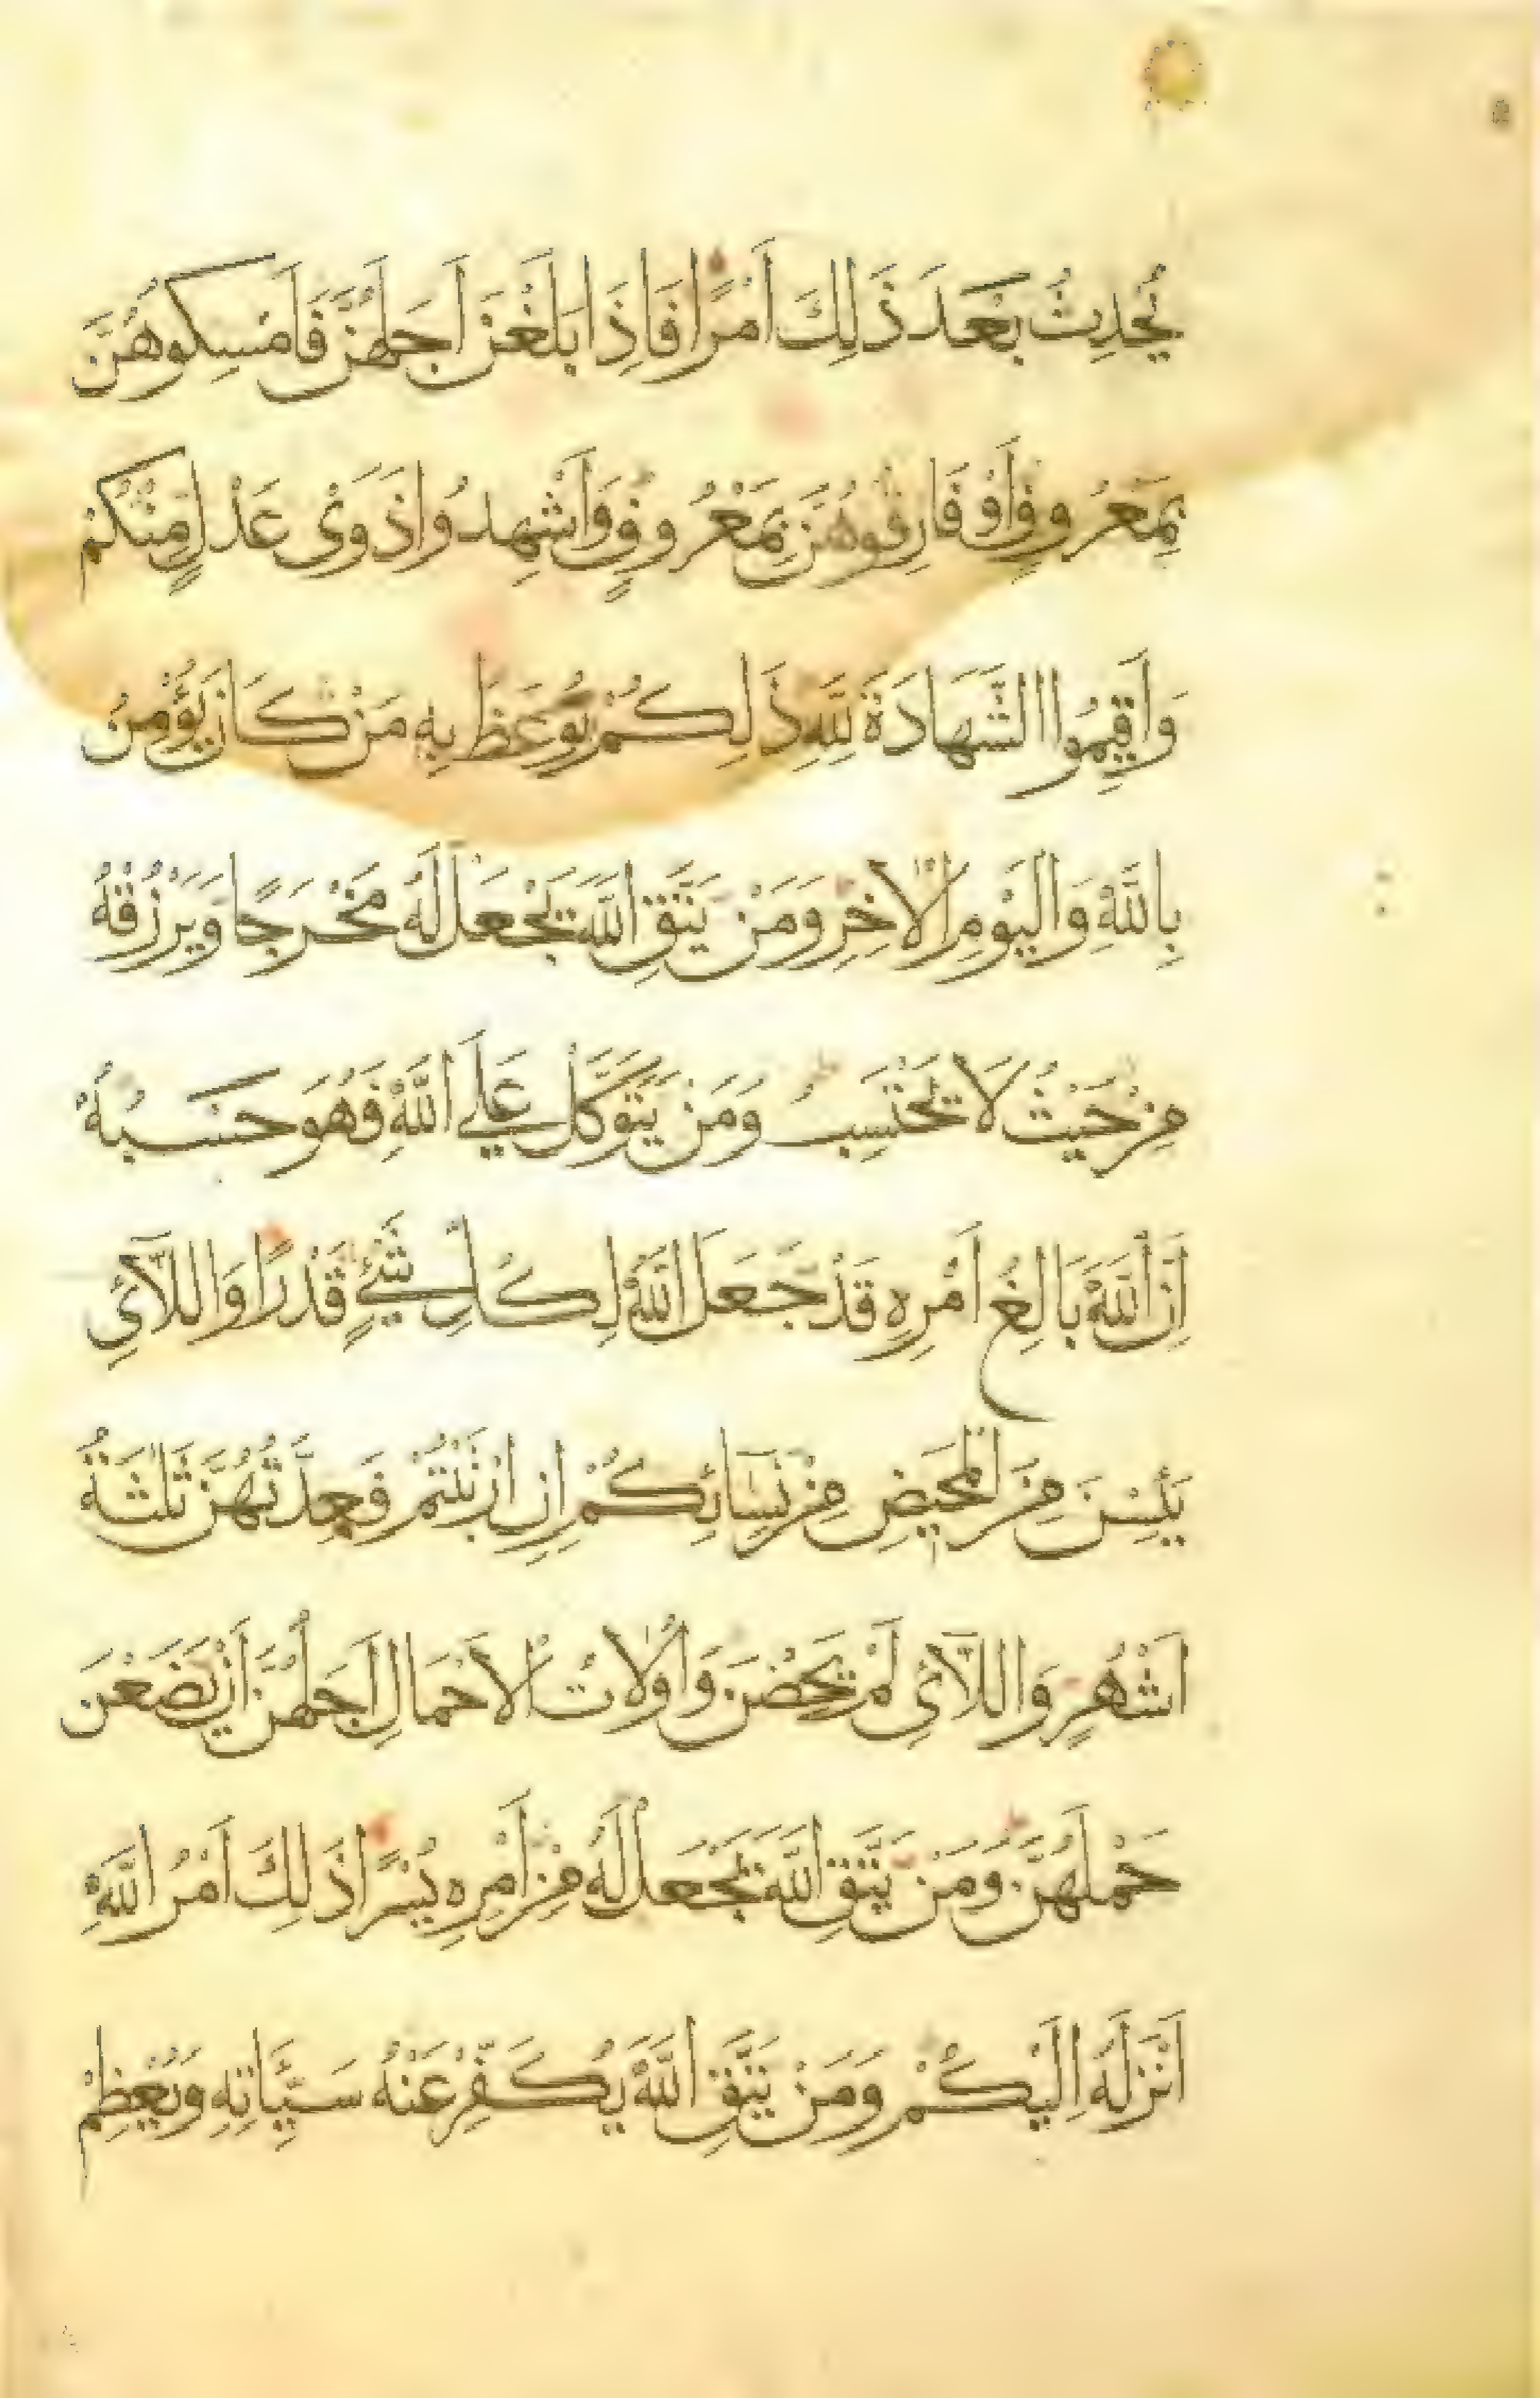 يُحْدِثُ بَعْدَ ذَلِكَ اَمْرًا فَاِذَا بَلَغْنَ اَجَلَهُنَّ فَاَمْسِكُوهُنَّ
بِمَعْرُوفٍ اَوْ فَارِقُوهُنَّ بِمَعْرُوفٍ وَاَشْهِدُوا ذَوَىْ عَدْلٍ مِنْكُمْ
وَاَقِيمُوا الشَّهَادَةَ لِلَّهِ ذَلِكُمْ يُوعَظُ بِهِ مَنْ كَانَ يُؤْمِنُ
بِاللَّهِ وَالْيَوْمِ الْاٰخِرِ وَمَنْ يَتَّقِ اللَّهَ يَجْعَلْ لَهُ مَخْرَجًا وَيَرْزُقْهُ
مِنْ حَيْثُ لَا يَحْتَسِبُ وَمَنْ يَتَوَكَّلْ عَلَى اللَّهِ فَهُوَ حَسْبُهُ
اِنَّ اللَّهَ بَالِغُ اَمْرِهِ قَدْ جَعَلَ اللَّهُ لِكُلِّ شَىْءٍ قَدْرًا وَاللَّآئِي
يَئِسْنَ مِنَ الْمَحِيضِ مِنْ نِسَآئِكُمْ اِنِ ارْتَبْتُمْ فَعِدَّتُهُنَّ ثَلٰثَةُ
اَشْهُرٍ وَاللَّآئِي لَمْ يَحِضْنَ وَاُولَاتُ الْاَحْمَالِ اَجَلُهُنَّ اَنْ يَضَعْنَ
حَمْلَهُنَّ وَمَنْ يَتَّقِ اللَّهَ يَجْعَلْ لَهُ مِنْ اَمْرِهِ يُسْرًا ذَلِكَ اَمْرُ اللَّهِ
اَنْزَلَهُ اِلَيْكُمْ وَمَنْ يَتَّقِ اللَّهَ يُكَفِّرْ عَنْهُ سَيِّئَاتِهِ وَيُعْظِمْ